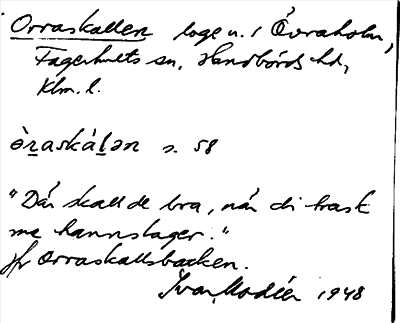 Orraskallen loge u. i Övraholm,
Fagerhults sn, Handbörds hd,
Klm. l.
òraskálən s. 58
"Där skall de bra, när di trask
me hannslager."
Jfr Orraskallsbacken.
Ivar Modéer 1948